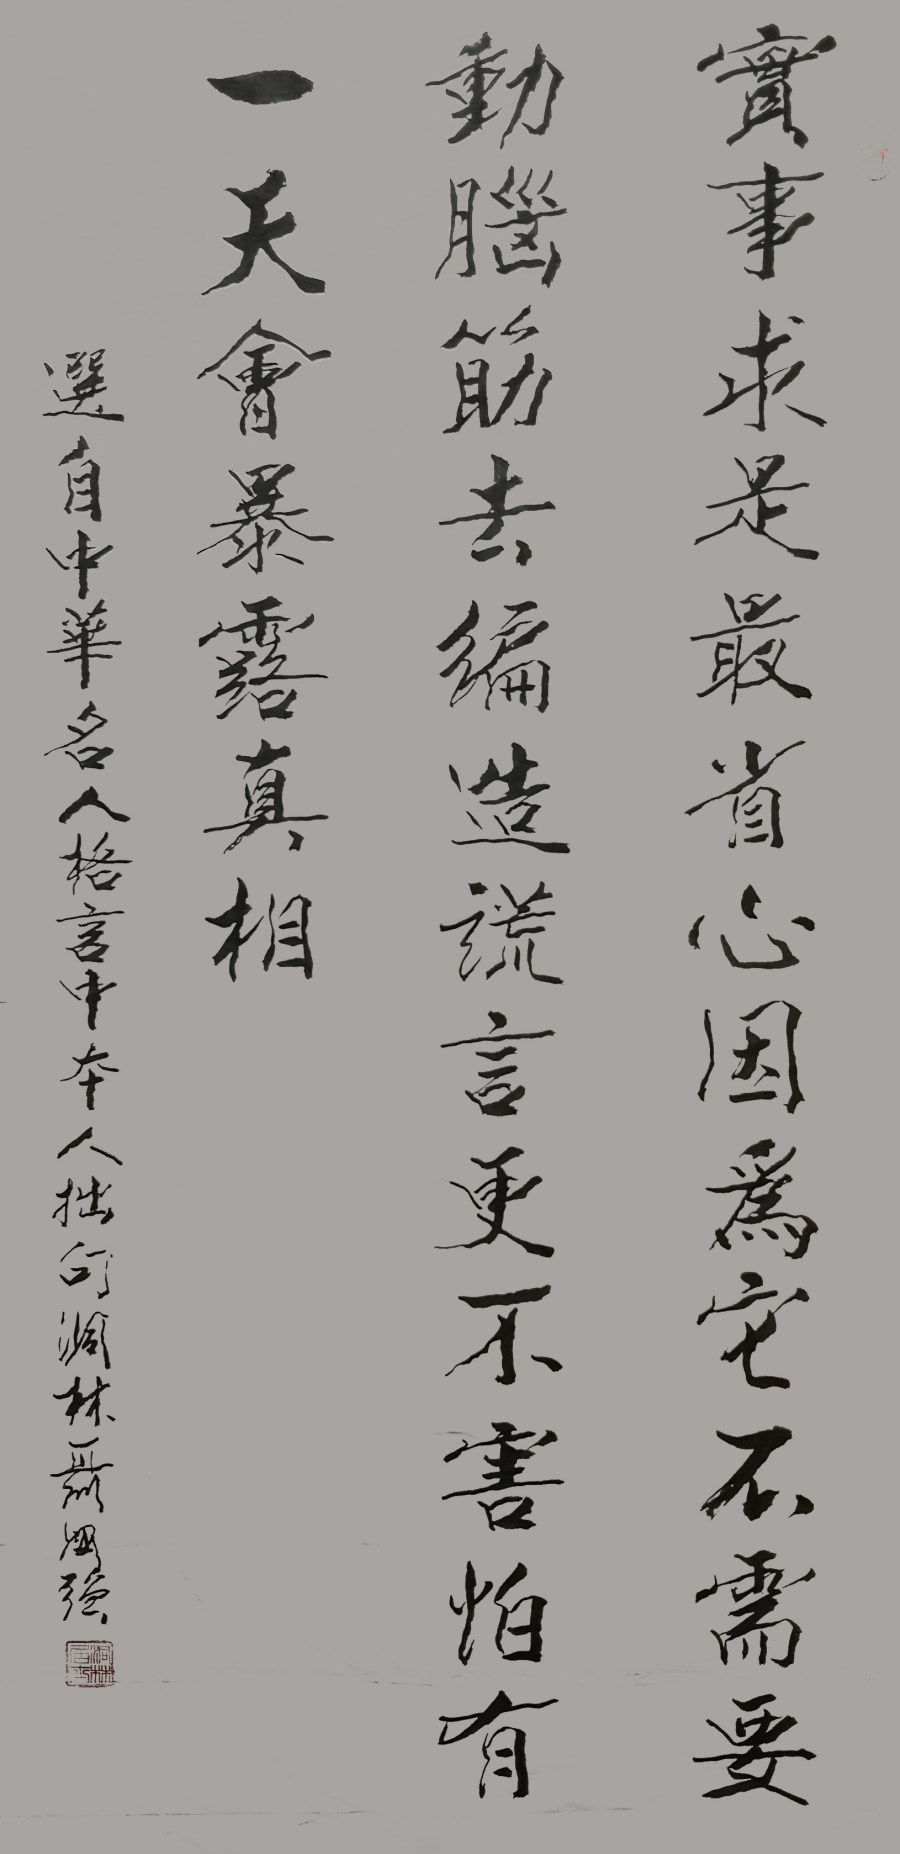 實事求是最省心因爲它不需要
動腦筋去編造謊言更不害怕有
一天會暴露真相
選自中華名人格言中本人拙句洞林聶國強